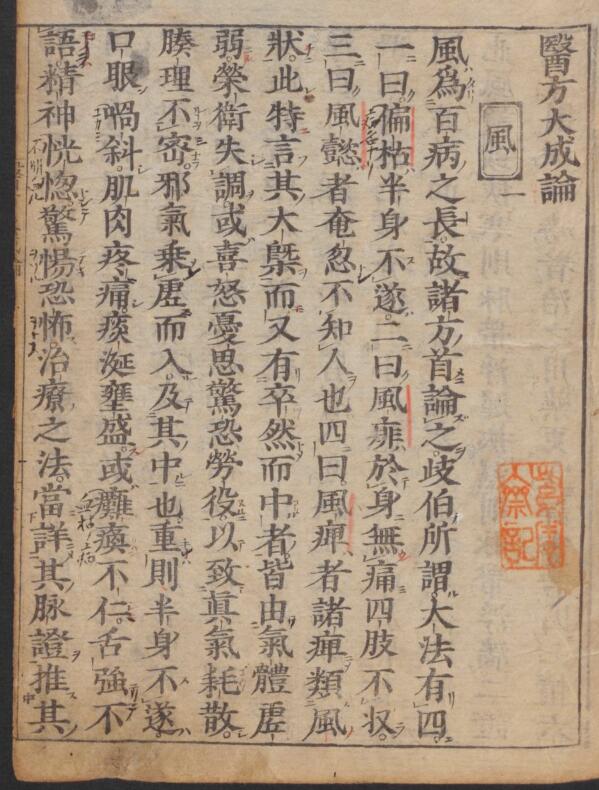 醫方大成論
風一
風爲百病之長故諸方首論之歧伯所謂大法有四
一曰偏枯半身不遂二曰風痱於身無痛四肢不収
三曰風懿者奄忽不知人也四曰風痺者諸痺類風
狀此特言其大槩而又有卒然而中者皆由氣體虗
弱榮衛失調或喜怒憂思驚恐勞役以致眞氣耗散
腠理不密邪氣乗虗而入及其中也重則半身不遂
口眼喎斜肌肉疼痛痰涎壅盛或癱瘓不仁舌強不
語精神恍惚驚惕恐怖治療之法當詳其脉證推其